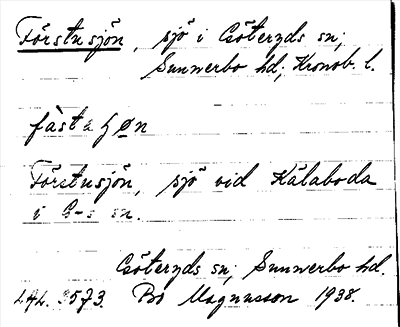 Förstusjön, sjö i Göteryds sn;
Sunnerbo hd; Kronob. l.
fàsta ɧøn
Förstusjön, sjö vid Kålaboda
i G-s sn.
Göteryds sn; Sunnerbo hd.
3573. Bo Magnusson 1938.